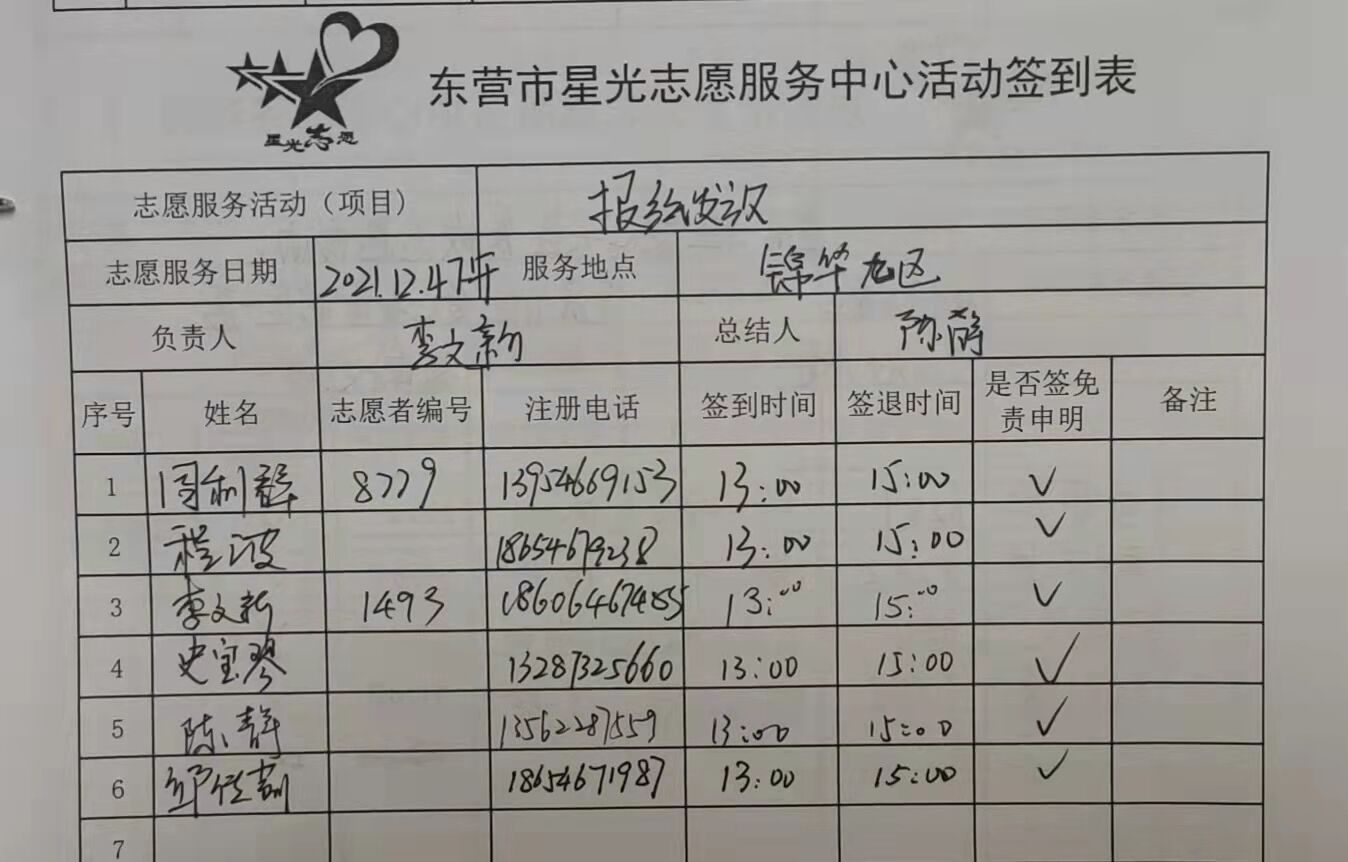 星光志愿
东营市星光志愿服务中心活动签到表
志愿服务活动（项目） 报纸发放
志愿服务日期 2021.12.4下午 服务地点 锦华九区
负责人 李文新 总结人 陈静
序号 姓名 志愿者编号 注册电话 签到时间 签退时间 是否签免责申明 备注
1 周利群 8779 13954669153 13:00 15:00 ✓
2 程波 18654679238 13:00 15:00 ✓
3 李文新 1493 18606467455 13:00 15:00 ✓
4 史宝琴 13287325660 13:00 15:00 ✓
5 陈静 13562287559 13:00 15:00 ✓
6 18654671987 13:00 15:00 ✓
7